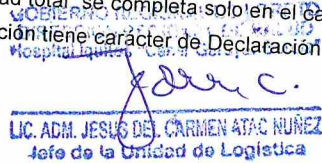 ad total se completa solo en el ca
GOBIERNO
ción tiene carácter de Declaración
Hospital Iquitos
LIC. ADM. JESUS DEL CARMEN ATAC NUÑEZ
Jefe de la Unidad de Logística